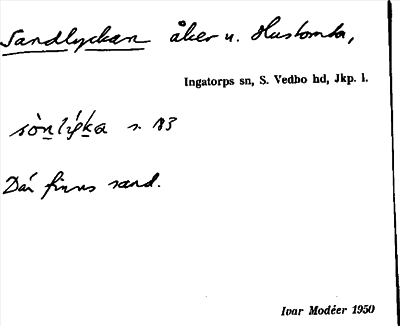 Sandlyckan åker u. Hustomta,
Ingatorps sn, S. Vedbo hd, Jkp. l.
s. 183
Där finns sand.
Ivar Modéer 1950